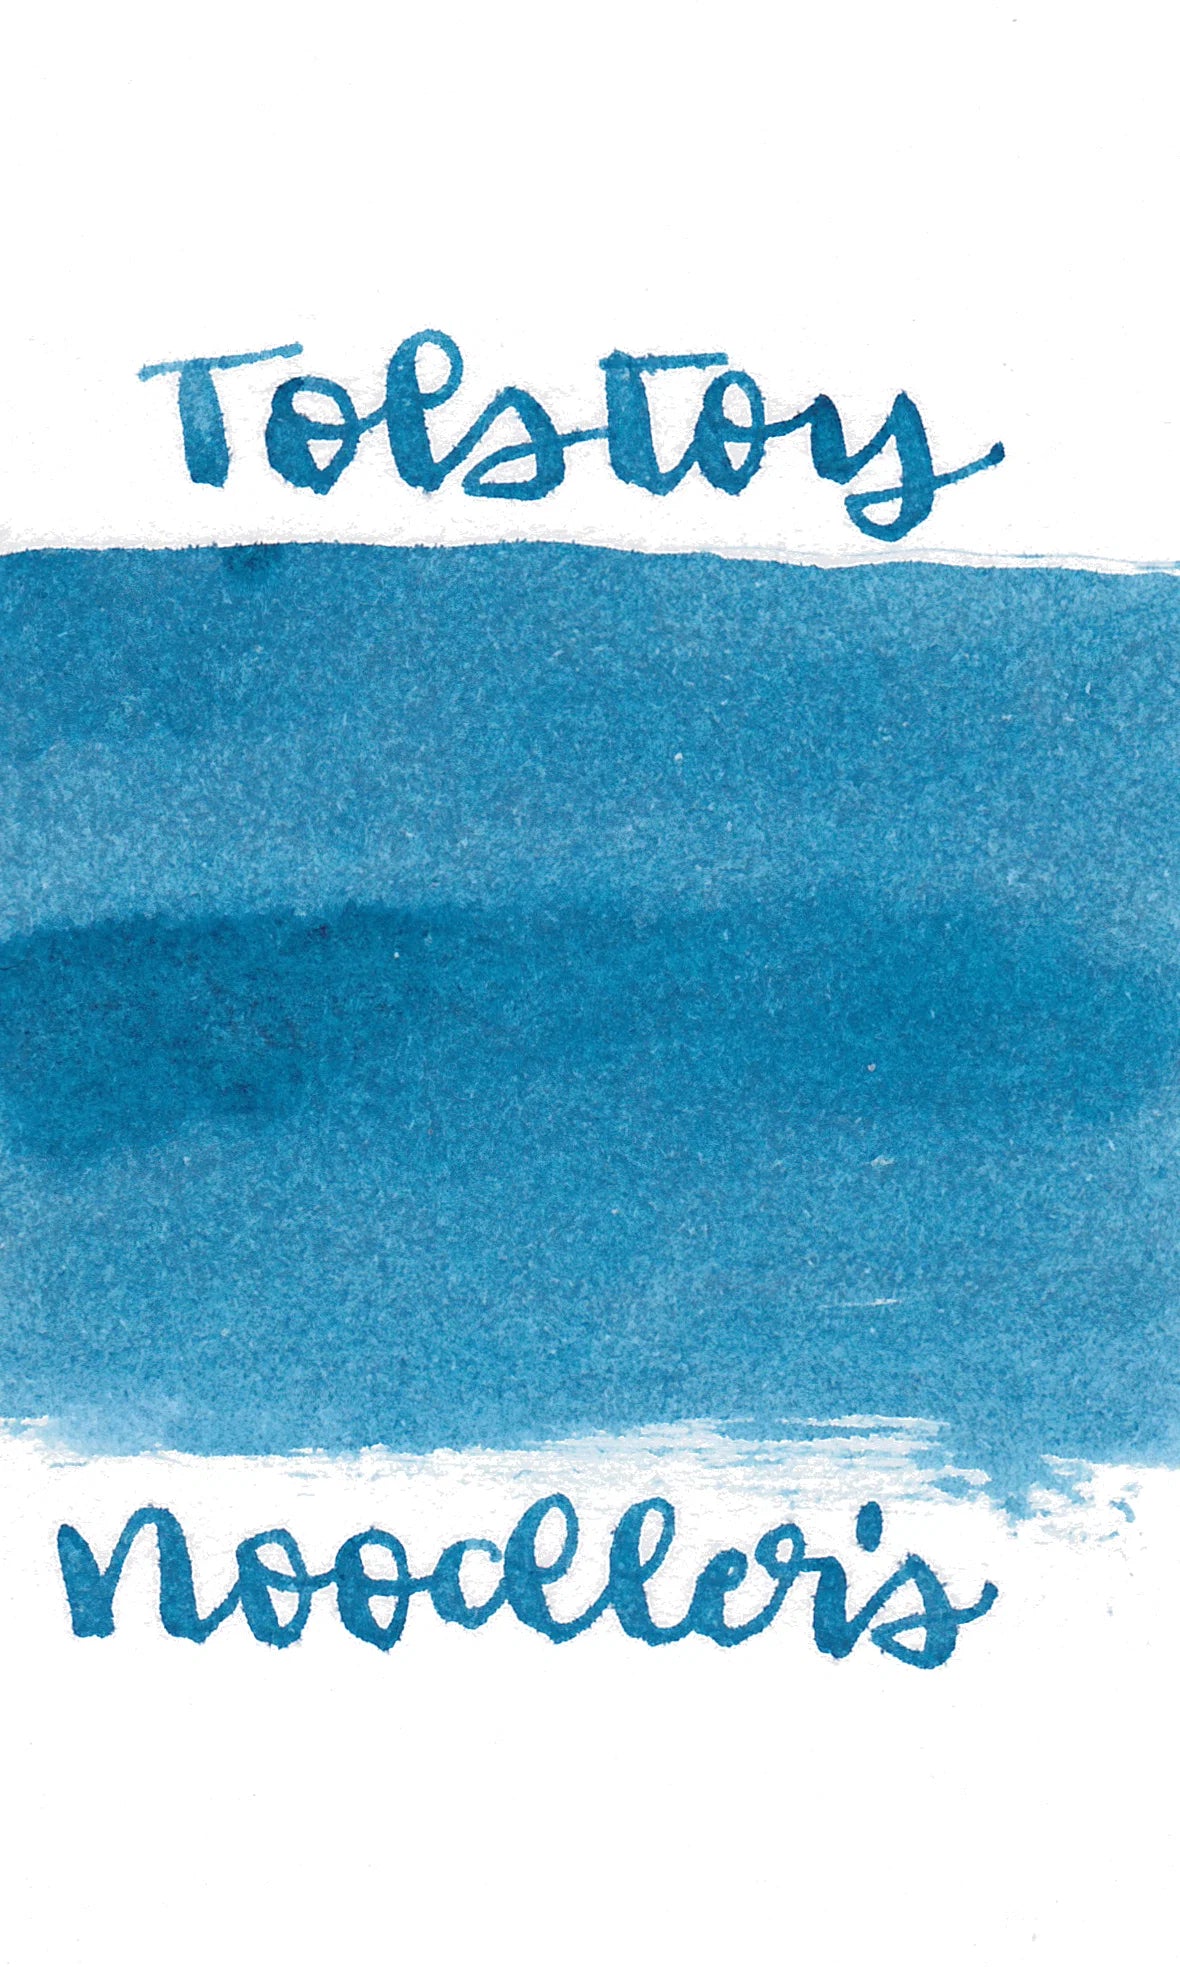 Tolstoy
noodler's